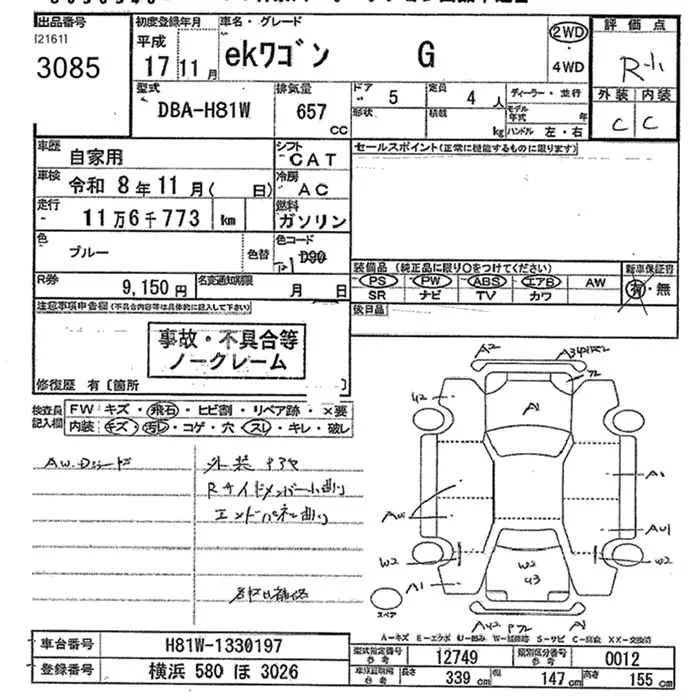 出品番号
[2161]
3085
初度登録年月
平成
17 11月
車名・グレード
ekワゴン G
2WD
・
4WD
評価点
R-
外装 内装
C C
型式
DBA-H81W
排気量
657
CC
ドア
5
定員
4 人
形状
積載
kg
ディーラー・並行
モデル年式 年
ハンドル 左・右
車歴
自家用
シフト
CAT
車検
令和 8年 11月( 日)
冷房
AC
走行
11万6千773 km
燃料
ガソリン
色
ブルー
色替
色コード
D90
R券
9,150円
名変通知期限
月 日
セールスポイント(正常に機能するものに限ります)
装備品 (純正品に限り○をつけてください)
PS PW ABS エアB AW
SR ナビ TV カワ
新車保証書
有・無
後日品
注意事項申告欄(不具合内容等は具体的に記入して下さい)
事故・不具合等
ノークレーム
修復歴 有〔箇所 〕
検査員記入欄
FW キズ・飛石・ヒビ割・リペア跡・×要
内装 キズ・汚レ・コゲ・穴・スレ・キレ・破レ
外装
Rサイドメンバー小曲り
エンドパネル曲り
A2
U2
A1
A1
W2
W2
W2
U3
A1
A1
スペア
A-キズ E-エクボ U-凹み W-補修跡 S-サビ C-腐食 XX-交換済
車台番号
H81W-1330197
登録番号
横浜 580 ほ 3026
型式指定番号
参考
12749
類別区分番号
参考
0012
車検証記載
参考
長さ
339 cm
幅
147 cm
高さ
155 cm